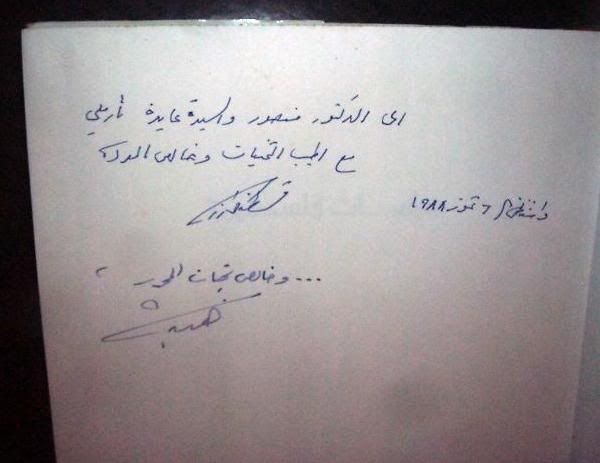 الى الدكتور منصور والسيدة عايدة
مع اطيب التحيات وخالص المودة
واشنطن ٦ تموز ١٩٨٨
... وخالص تحيات المحرر ،